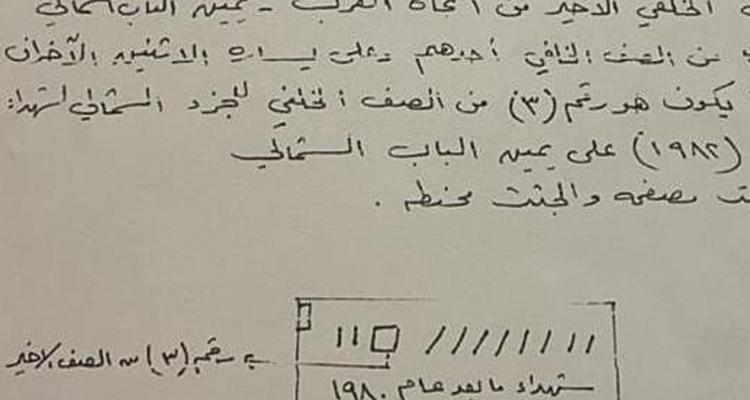 الخلفي الاخير من اتجاه الغرب - يمين الباب الشمالي
من الصف الخلفي أحدهم وعلى يساره الاثنين الآخران
يكون هو رقم (٣) من الصف الخلفي للجزء الشمالي لشهداء
(١٩٨٢) على يمين الباب الشمالي
مصفحه والجثث محنطه .
رقم (٣) من الصف الاخير
شهداء ما بعد عام ١٩٨٠